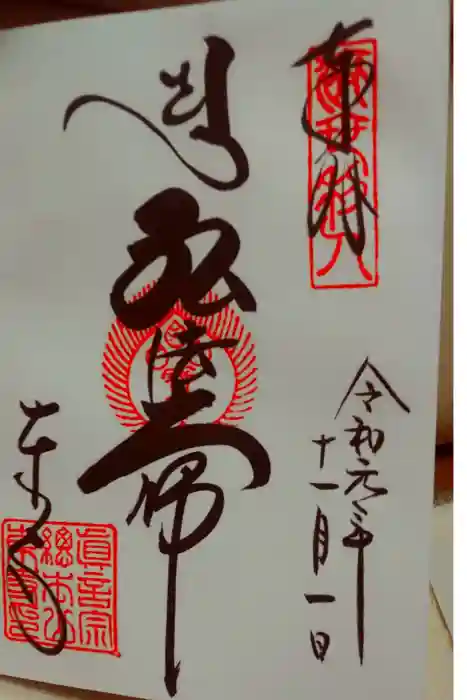 奉拝
令和元年
十一月一日
弘法大師
東寺
真言宗
総本山
東寺印